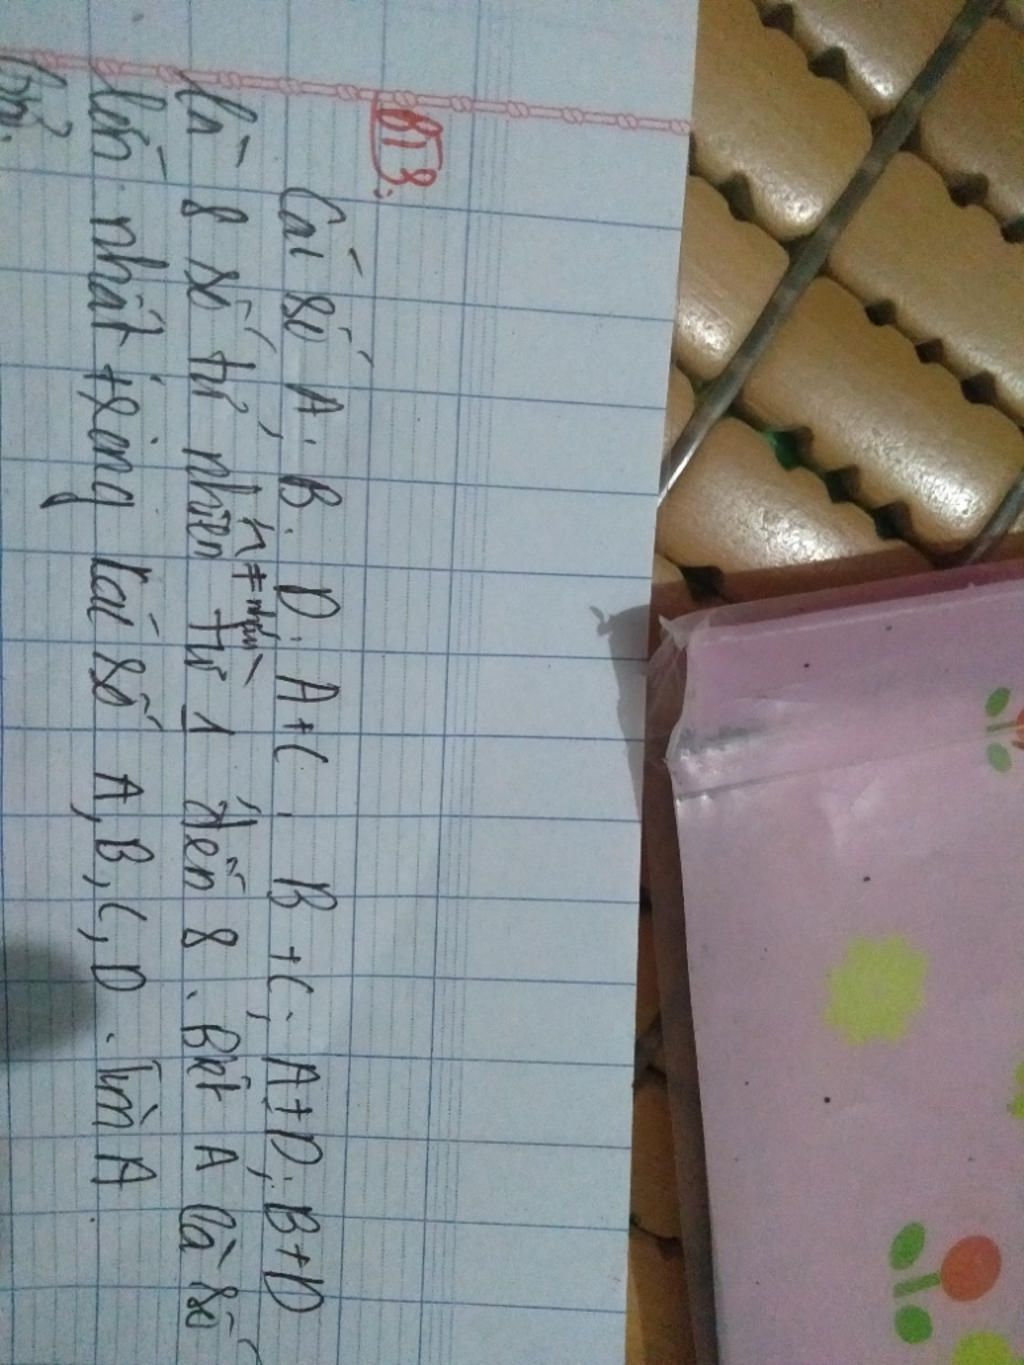 BT8:
Cái số A. B. D. A+C. B+C; A+D; B+D
là 8 số tự nhiên từ 1 đến 8. Biết A là số
k ≠ nhau
lớn nhất trong các số A, B, C, D. Tìm A